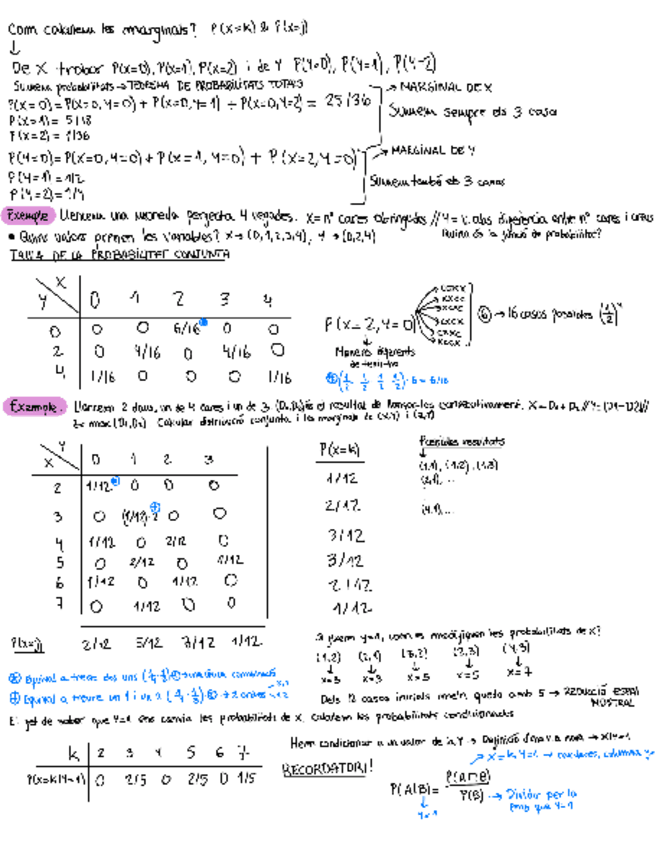 Com calculem les marginals? P(X=k) & P(X=j)
↓
De X trobar P(X=0), P(X=1), P(X=2) i de Y P(Y=0), P(Y=1), P(Y=2)
Sumem probabilitats → TEOREMA DE PROBABILITATS TOTALS
P(X=0) = P(X=0, Y=0) + P(X=0, Y=1) + P(X=0, Y=2) = 25/36 → MARGINAL DE X
P(X=1) = 5/18 Sumem sempre els 3 casos
P(X=2) = 1/36
P(Y=0) = P(X=0, Y=0) + P(X=1, Y=0) + P(X=2, Y=0) → MARGINAL DE Y
P(Y=1) = 1/2 Sumem també els 3 casos
P(Y=2) = 1/4
Exemple Llencem una moneda perfecta 4 vegades. X = nº cares obtingudes // Y = v. abs diferència entre nº cares i creus
• Quins valors prenen les variables? X → (0,1,2,3,4), Y → (0,2,4) Quina és la funció de probabilitat?
TAULA DE LA PROBABILITAT CONJUNTA
Y X 0 1 2 3 4
0 0 0 6/16 0 0
2 0 4/16 0 4/16 0
4 1/16 0 0 0 1/16
P(X=2, Y=0) ⑥ → 16 casos possibles (1/2)⁴
Maneres diferents
(1/2 · 1/2 · 1/2 · 1/2) · 6 = 6/16
Exemple. Llancem 2 daus, un de 4 cares i un de 3. (D₁,D₂) és el resultat de llançar-los consecutivament. X = D₁ + D₂ // Y = |D1-D2| //
Z = max (D₁,D₂) Calcular distribució conjunta i les marginals de (X,Y) i (Z,Y)
X Y 0 1 2 3
2 1/12 0 0 0
3 0 (1/12)·2 0 0
4 1/12 0 2/12 0
5 0 2/12 0 1/12
6 1/12 0 1/12 0
7 0 1/12 0 0
P(X=j) 2/12 5/12 3/12 1/12
P(X=k)
1/12
2/12
3/12
3/12
2/12
1/12
Possibles resultats
↓
(1,1), (1,2), (1,3)
(2,1), ...
(4,1), ...
Si fixem Y=1, com es modifiquen les probabilitats de X?
(1,2) (2,1) (3,2) (2,3) (4,3)
↓ ↓ ↓ ↓ ↓
X=3 X=3 X=5 X=5 X=7
Dels 12 casos inicials me'n queda amb 5 → REDUCCIÓ ESPAI MOSTRAL
Equival a treure dos uns (1/4 · 1/3) → única combinació
Equival a treure un 1 i un 2 (1/4 · 1/3) ② → 2 ordres
El fet de saber que Y=1 ens canvia les probabilitats de X. Calculem les probabilitats condicionades
k 2 3 4 5 6 7
P(X=k|Y=1) 0 2/5 0 2/5 0 1/5
Hem condicionar a un valor de la Y → Definició d'una v.a nova → X|Y=1
RECORDATORI!
P(A|B) = P(A∩B) / P(B) → Dividir per la
prob que Y=1
Y=1